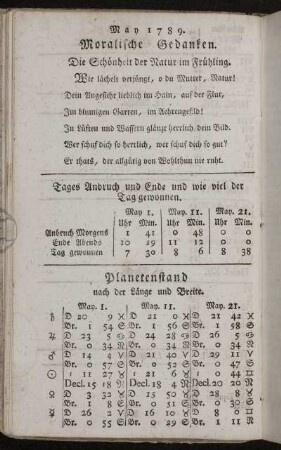 May 1789.
Moralische Gedanken.
Die Schönheit der Natur im Frühling.
Wie lächelt verjüngt, o du Mutter, Natur!
Dein Angesicht lieblich im Hain, auf der Flur,
Im blumigen Garten, im Aehrengefild!
In Lüften und Wassern glänzt herrlich dein Bild.
Wer schuf dich so herrlich, wer schuf dich so gut?
Er thats, der allgütig von Wohlthun nie ruht.
Tages Anbruch und Ende und wie viel der
Tag gewonnen.
May 1. May 11. May 21.
Uhr Min. Uhr Min. Uhr Min.
Anbruch Morgens 1 41 0 48 0 0
Ende Abends 10 19 11 12 0 0
Tag gewonnen 7 30 8 6 8 38
Planetenstand
nach der Länge und Breite.
May. 1. May. 11. May. 21.
♄ D 20 9 ♓ D 21 0 ♓ D 21 42 ♓
Br. 1 54 S Br. 1 56 S Br. 1 58 S
♃ D 23 5 ♋ D 24 28 ♋ D 26 5 ♋
Br. 0 34 N Br. 0 34 N Br. 0 34 N
♂ D 14 4 ♈ D 21 40 ♈ D 29 11 ♈
Br. 0 57 S Br. 0 52 S Br. 0 47 S
☉ 11 27 ♉ 21 6 ♉ 0 44 ♊
Decl. 15 18 N Decl. 18 4 N Decl. 20 20 N
♀ D 3 32 ♉ D 15 50 ♉ D 28 8 ♉
Br. 1 8 S Br. 0 51 S Br. 0 30 S
☿ D 26 2 ♈ D 16 10 ♉ D 8 0 ♊
Br. 0 55 S Br. 0 29 S Br. 0